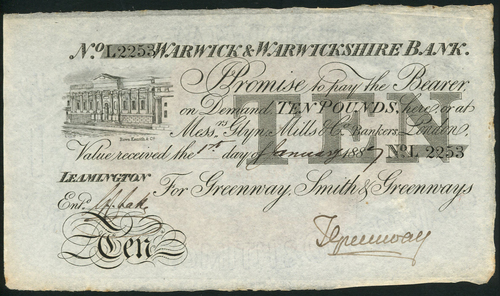 No. L2253 WARWICK & WARWICKSHIRE BANK.
I Promise to pay the Bearer
on Demand TEN POUNDS, here, or at
Messrs. Glyn Mills & Co. Bankers, London,
Value received the 1st day of January 1887 No. L 2253
TEN
LEAMINGTON
For Greenway, Smith & Greenways
Entd.
Ten
Greenway